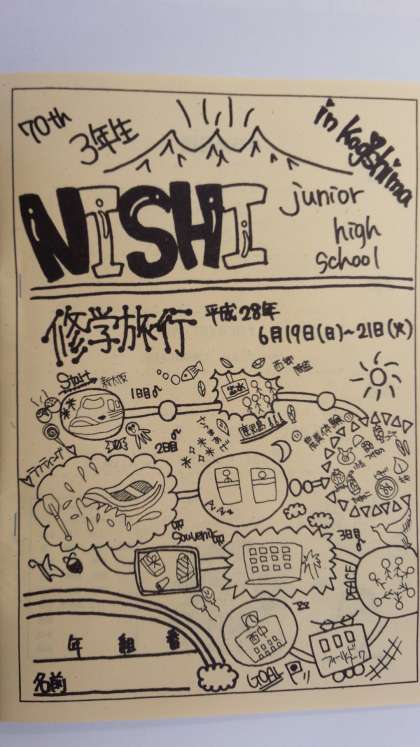 70th
3年生
in Kagoshima
NISHI
junior
high
school
修学旅行
平成28年
6月19日(日)~21日(火)
Start
新大阪
1日目
2日目
鹿児島
Souvenir
3日目
PEACE
西中
フィールドワーク
GOAL
年 組 番
名前